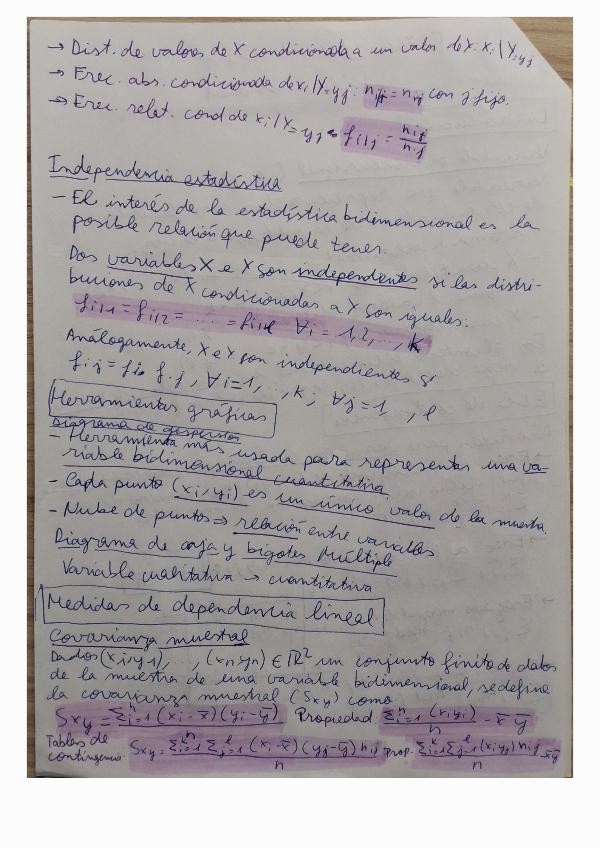 → Dist. de valores de X condicionada a un valor de Y: xi | Y=yj
→ Frec. abs. condicionada de xi | Y=yj: ni|j = nij con j fijo.
→ Frec. relat. cond de xi | Y=yj = fi|j = nij / n.j
Independencia estadística
- El interés de la estadística bidimensional es la
posible relación que puede tener.
Dos variables X e Y son independientes si las distri-
buciones de X condicionadas a Y son iguales:
fi|1 = fi|2 = ... = fi|l ∀i = 1,2,..., k
Análogamente, X e Y son independientes si
fij = fi. f.j, ∀i=1, ..., k; ∀j=1, , l
Herramientas gráficas
Diagrama de dispersión
- Herramienta más usada para representar una va-
riable bidimensional cuantitativa.
- Cada punto (xi, yi) es un único valor de la muestra.
- Nube de puntos ⇒ relación entre variables
Diagrama de caja y bigotes Múltiple
Variable cualitativa → cuantitativa
Medidas de dependencia lineal
Covarianza muestral
Dados (x1, y1), , (xn, yn) ∈ ℝ² un conjunto finito de datos
de la muestra de una variable bidimensional, se define
la covarianza muestral (Sxy) como
Sxy = Σⁿi=1 (xi - x̄)(yi - ȳ) / n Propiedad: Σⁿi=1 (xi yi) / n - x̄ ȳ
Tablas de contingencia: Sxy = Σᵏi=1 Σˡj=1 (xi - x̄)(yj - ȳ) nij / n Prop. Σᵏi=1 Σˡj=1 (xi yj) nij / n - x̄ȳ